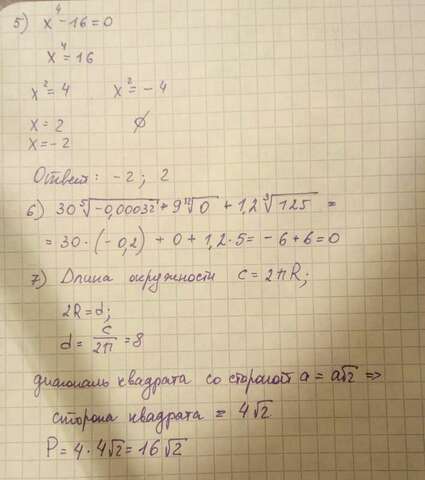 5) x⁴ - 16 = 0
x⁴ = 16
x² = 4 x² = -4
x = 2 ∅
x = -2
Ответ: -2; 2
6) 30 ⁵√-0,00032 + 9 ¹²√0 + 1,2 ³√125 =
= 30 · (-0,2) + 0 + 1,2 · 5 = -6 + 6 = 0
7) Длина окружности c = 2πR;
2R = d;
d = c/2π = 8
диагональ квадрата со стороной a = a√2 =>
сторона квадрата = 4√2
P = 4 · 4√2 = 16√2